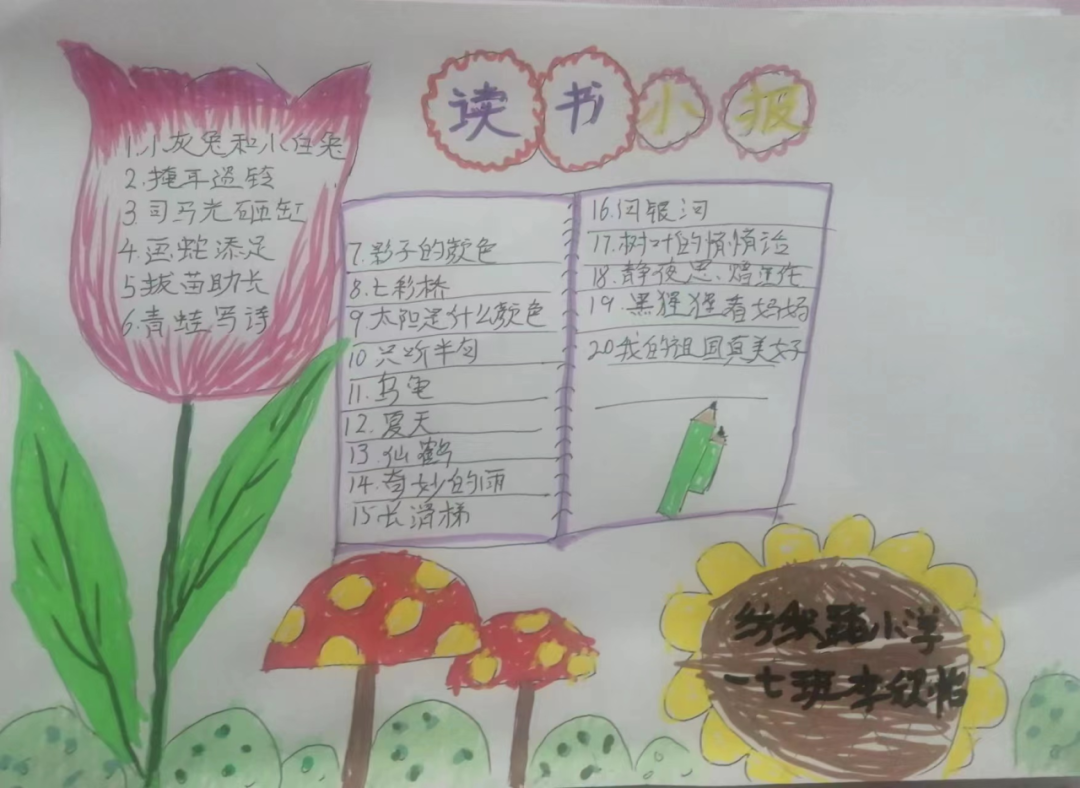 读书小报
1.小灰兔和小白兔
2.掩耳盗铃
3.司马光砸缸
4.画蛇添足
5拔苗助长
6.青蛙写诗
7.影子的颜色
8.七彩桥
9.太阳是什么颜色
10只听半句
11.乌龟
12.夏天
13.仙鹤
14.奇妙的雨
15长滑梯
16.问银河
17.树叶的悄悄话
18.静夜思
19.黑猩猩看妈妈
20我的祖国真美好
纺织路小学
一七班李